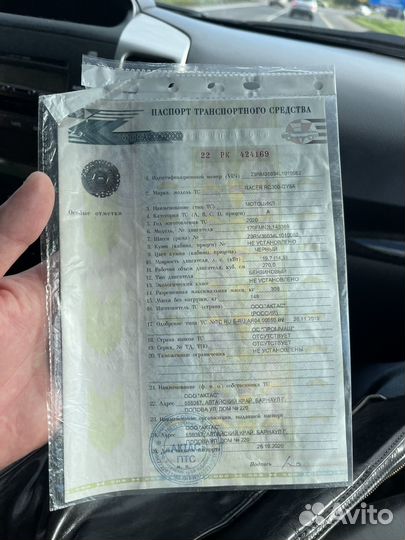 ПАСПОРТ ТРАНСПОРТНОГО СРЕДСТВА
22 РК 424169
Особые отметки
1. Идентификационный номер (VIN)
2. Марка, модель ТС RACER RC300-GY8A
3. Наименование (тип ТС) МОТОЦИКЛ
4. Категория ТС (А, В, С, D, прицеп) A
5. Год изготовления ТС 2020
6. Модель, № двигателя
7. Шасси (рама) №
8. Кузов (кабина, прицеп) № НЕ УСТАНОВЛЕНО
9. Цвет кузова (кабины, прицепа) ЧЕРНЫЙ
10. Мощность двигателя, л. с. (кВт)
11. Рабочий объем двигателя, куб. см 270.0
12. Тип двигателя БЕНЗИНОВЫЙ
13. Экологический класс НЕ УСТАНОВЛЕНО
14. Разрешенная максимальная масса, кг 308
15. Масса без нагрузки, кг 148
16. Изготовитель ТС (страна) ООО "АКТАС"
(РОССИЯ)
17. Одобрение типа ТС №
ОС "ПРОММАШ"
18. Страна вывоза ТС ОТСУТСТВУЕТ
19. Серия, № ТД, ТПО ОТСУТСТВУЕТ
20. Таможенные ограничения НЕ УСТАНОВЛЕНЫ
21. Наименование (ф. и. о.) собственника ТС
ООО "АКТАС"
22. Адрес 656067, АЛТАЙСКИЙ КРАЙ, БАРНАУЛ Г,
ПОПОВА УЛ, ДОМ № 220
23. Наименование организации, выдавшей паспорт
ООО "АКТАС"
24. Адрес 656067, АЛТАЙСКИЙ КРАЙ, БАРНАУЛ Г,
ПОПОВА УЛ, ДОМ № 220
25. Дата выдачи паспорта 26.10.2020
АКТАС
ПТС
Подпись
Avito